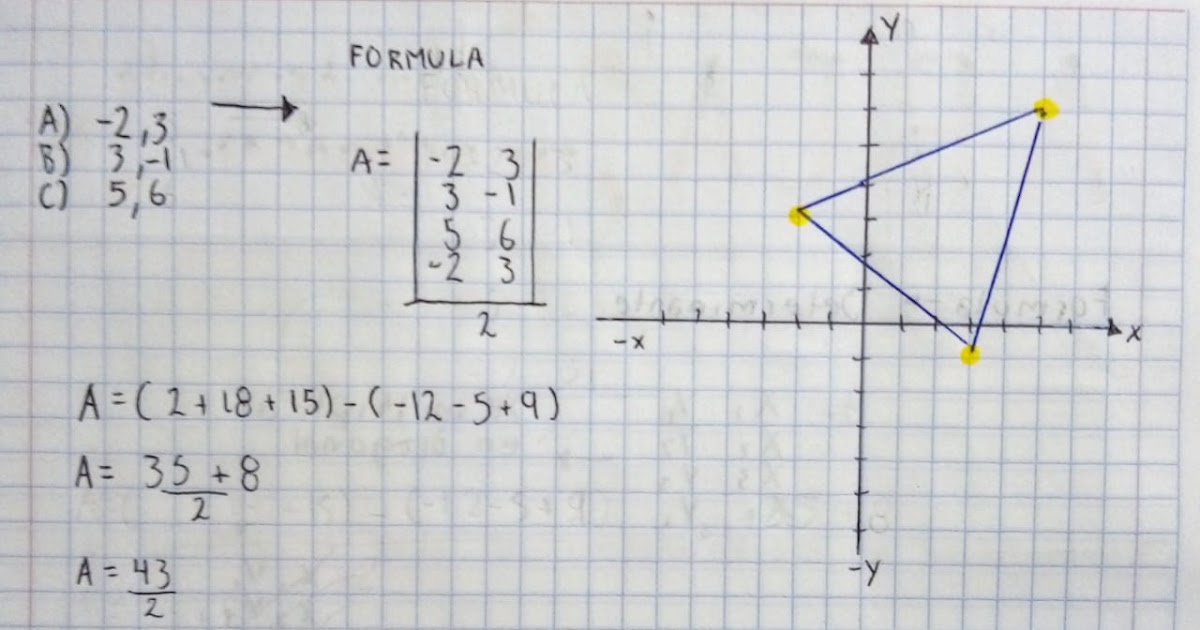 FORMULA
A) -2,3
B) 3,-1
C) 5,6
A= | -2 3 |
| 3 -1 |
| 5 6 |
| -2 3 |
2
A = ( 2 + 18 + 15) - (-12 - 5 + 9)
A = 35 + 8
2
A = 43
2
Y
-X
X
-Y